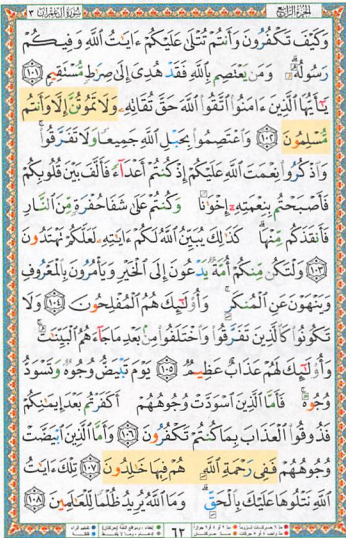 الجزء الرابع سورة آل عمران ٣
وَكَيْفَ تَكْفُرُونَ وَأَنتُمْ تُتْلَىٰ عَلَيْكُمْ ءَايَٰتُ ٱللَّهِ وَفِيكُمْ
رَسُولُهُۥ ۗ وَمَن يَعْتَصِم بِٱللَّهِ فَقَدْ هُدِىَ إِلَىٰ صِرَٰطٍ مُّسْتَقِيمٍ ١٠١
يَٰٓأَيُّهَا ٱلَّذِينَ ءَامَنُوا۟ ٱتَّقُوا۟ ٱللَّهَ حَقَّ تُقَاتِهِۦ وَلَا تَمُوتُنَّ إِلَّا وَأَنتُم
مُّسْلِمُونَ ١٠٢ وَٱعْتَصِمُوا۟ بِحَبْلِ ٱللَّهِ جَمِيعًا وَلَا تَفَرَّقُوا۟ ۚ
وَٱذْكُرُوا۟ نِعْمَتَ ٱللَّهِ عَلَيْكُمْ إِذْ كُنتُمْ أَعْدَآءً فَأَلَّفَ بَيْنَ قُلُوبِكُمْ
فَأَصْبَحْتُم بِنِعْمَتِهِۦٓ إِخْوَٰنًا وَكُنتُمْ عَلَىٰ شَفَا حُفْرَةٍ مِّنَ ٱلنَّارِ
فَأَنقَذَكُم مِّنْهَا ۗ كَذَٰلِكَ يُبَيِّنُ ٱللَّهُ لَكُمْ ءَايَٰتِهِۦ لَعَلَّكُمْ تَهْتَدُونَ
١٠٣ وَلْتَكُن مِّنكُمْ أُمَّةٌ يَدْعُونَ إِلَى ٱلْخَيْرِ وَيَأْمُرُونَ بِٱلْمَعْرُوفِ
وَيَنْهَوْنَ عَنِ ٱلْمُنكَرِ ۚ وَأُو۟لَٰٓئِكَ هُمُ ٱلْمُفْلِحُونَ ١٠٤ وَلَا
تَكُونُوا۟ كَٱلَّذِينَ تَفَرَّقُوا۟ وَٱخْتَلَفُوا۟ مِنۢ بَعْدِ مَا جَآءَهُمُ ٱلْبَيِّنَٰتُ ۚ
وَأُو۟لَٰٓئِكَ لَهُمْ عَذَابٌ عَظِيمٌ ١٠٥ يَوْمَ تَبْيَضُّ وُجُوهٌ وَتَسْوَدُّ
وُجُوهٌ ۚ فَأَمَّا ٱلَّذِينَ ٱسْوَدَّتْ وُجُوهُهُمْ أَكَفَرْتُم بَعْدَ إِيمَٰنِكُمْ
فَذُوقُوا۟ ٱلْعَذَابَ بِمَا كُنتُمْ تَكْفُرُونَ ١٠٦ وَأَمَّا ٱلَّذِينَ ٱبْيَضَّتْ
وُجُوهُهُمْ فَفِى رَحْمَةِ ٱللَّهِ هُمْ فِيهَا خَٰلِدُونَ ١٠٧ تِلْكَ ءَايَٰتُ
ٱللَّهِ نَتْلُوهَا عَلَيْكَ بِٱلْحَقِّ ۗ وَمَا ٱللَّهُ يُرِيدُ ظُلْمًا لِّلْعَٰلَمِينَ ١٠٨
٦٣